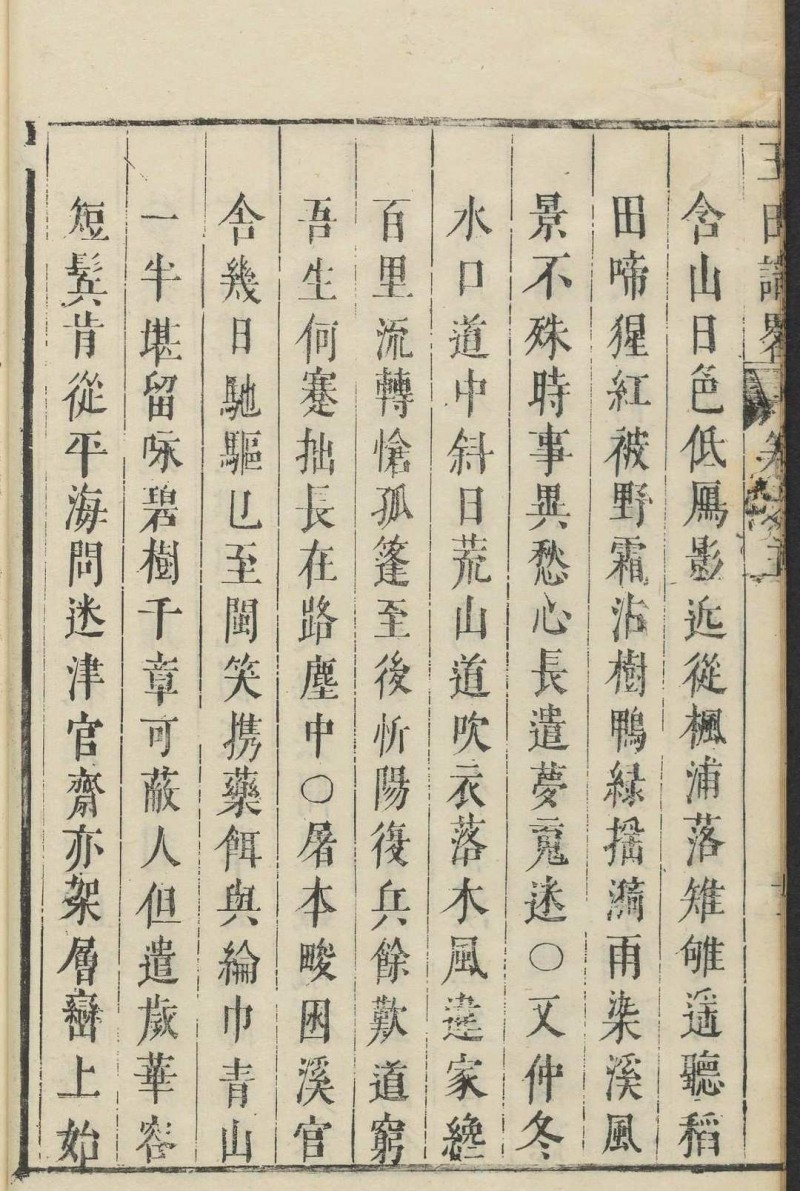 玉田識畧
含山日色低鴈影近從楓浦落雉雊遥聽稻
田啼猩紅被野霜沾樹鴨綠揺漪雨染溪風
景不殊時事異愁心長遣夢䰟迷○又仲冬
水口道中斜日荒山道吹衣落木風違家纔
百里流轉愴孤篷至後忻陽復兵餘歎道窮
吾生何蹇拙長在路塵中○屠本畯困溪官
舎幾日馳驅已至閩笑携藥餌與綸巾青山
一半堪留咏碧樹千章可蔽人但遣歲華容
短鬂肯從平海問迷津官齋亦架層巒上始